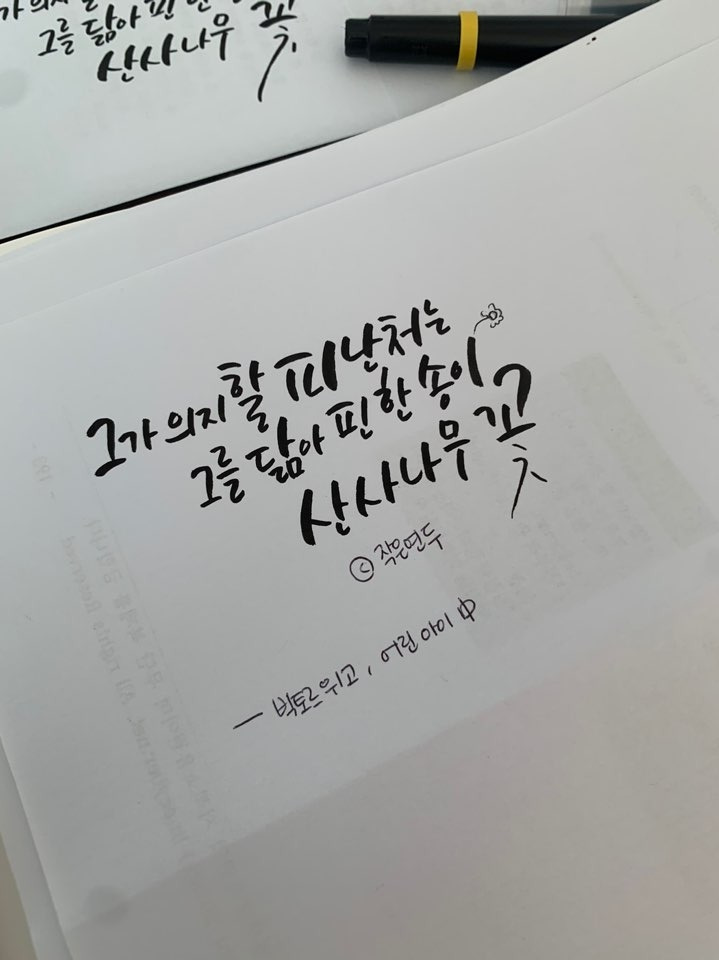 그를 닮아 핀
산사나무 꽃
그가 의지할 피난처는
그를 닮아 핀 한 송이
산사나무 꽃
ⓒ 작은연두
— 빅토르 위고, 어린 아이 中